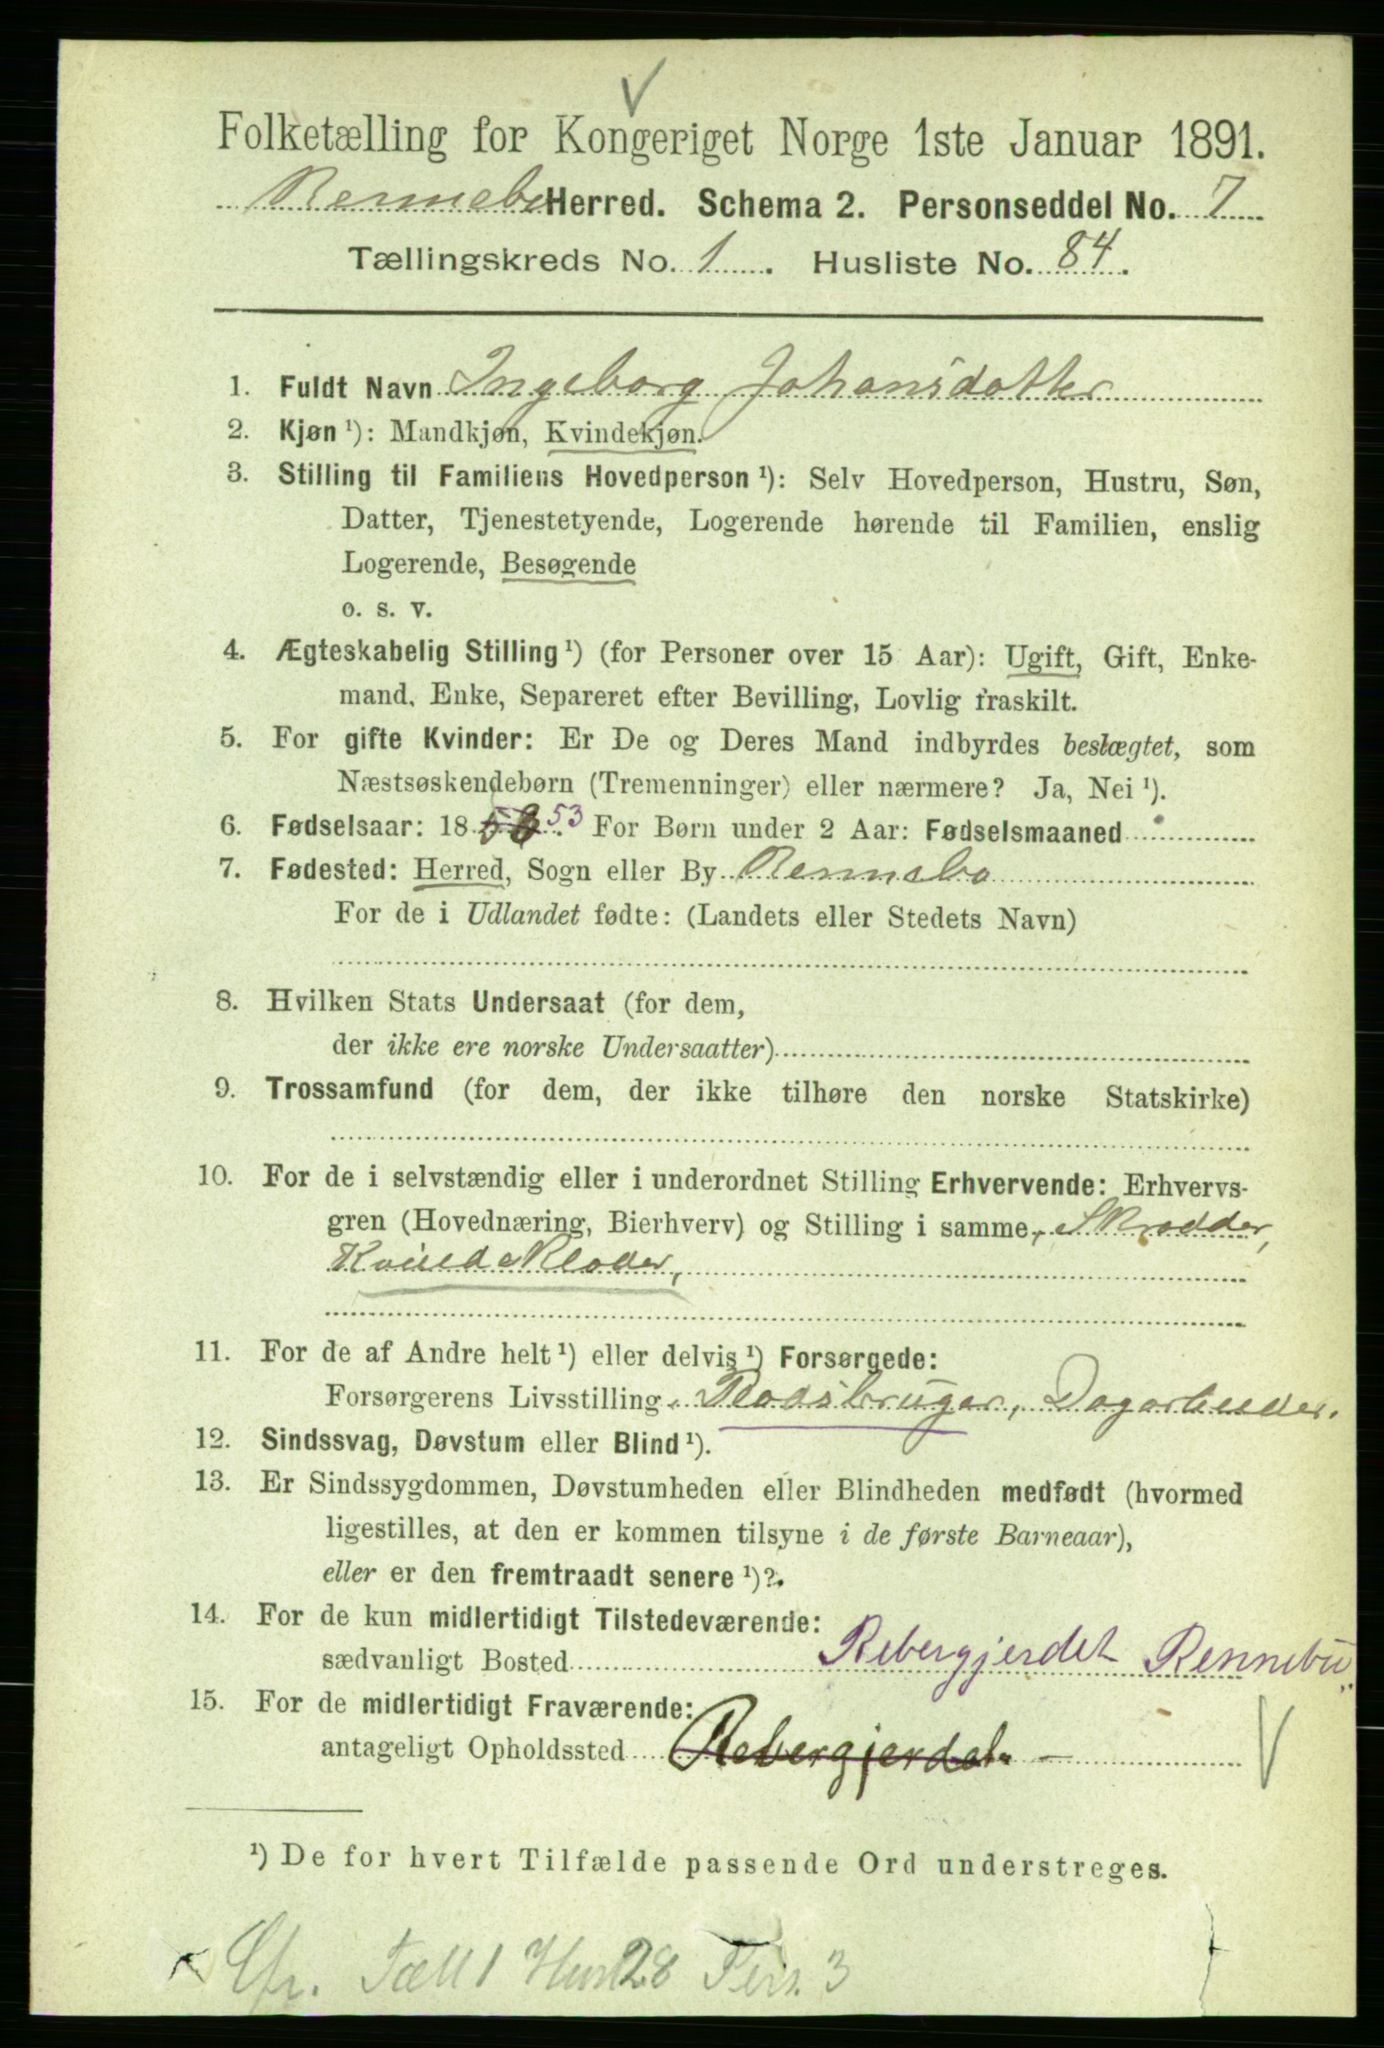 V
Folketælling for Kongeriget Norge 1ste Januar 1891.
Rennebo Herred. Schema 2. Personseddel No. 7
Tællingskreds No. 1. Husliste No. 84.
1. Fuldt Navn Ingeborg Johansdatter
2. Kjøn ¹): Mandkjøn, Kvindekjøn.
3. Stilling til Familiens Hovedperson ¹): Selv Hovedperson, Hustru, Søn,
Datter, Tjenestetyende, Logerende hørende til Familien, enslig
Logerende, Besøgende
o. s. v.
4. Ægteskabelig Stilling ¹) (for Personer over 15 Aar): Ugift, Gift, Enke-
mand, Enke, Separeret efter Bevilling, Lovlig fraskilt.
5. For gifte Kvinder: Er De og Deres Mand indbyrdes beslægtet, som
Næstsøskendebørn (Tremenninger) eller nærmere? Ja, Nei ¹).
6. Fødselsaar: 18 53. For Børn under 2 Aar: Fødselsmaaned
7. Fødested: Herred, Sogn eller By Rennebo
For de i Udlandet fødte: (Landets eller Stedets Navn)
8. Hvilken Stats Undersaat (for dem,
der ikke ere norske Undersaatter)
9. Trossamfund (for dem, der ikke tilhøre den norske Statskirke)
10. For de i selvstændig eller i underordnet Stilling Erhvervende: Erhvervs-
gren (Hovednæring, Bierhverv) og Stilling i samme, Skrædder,
Kvindeklæder,
11. For de af Andre helt ¹) eller delvis ¹) Forsørgede:
Forsørgerens Livsstilling. Pladsbruger, Dagarbeider.
12. Sindssvag, Døvstum eller Blind ¹).
13. Er Sindssygdommen, Døvstumheden eller Blindheden medfødt (hvormed
ligestilles, at den er kommen tilsyne i de første Barneaar),
eller er den fremtraadt senere ¹)?.
14. For de kun midlertidigt Tilstedeværende:
sædvanligt Bosted Rebergjerdet Rennebu
15. For de midlertidigt Fraværende:
antageligt Opholdssted Rebergjerdet. —
V
¹) De for hvert Tilfælde passende Ord understreges.
Cfr. Tæll 1 Hus 28 Pers. 3